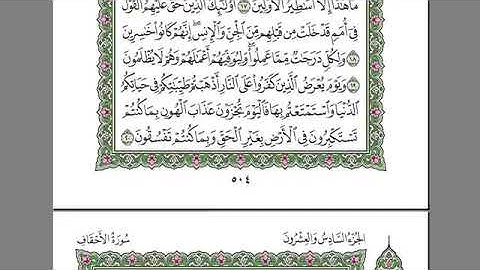 مَا هَٰذَا إِلَّا أَسَٰطِيرُ ٱلْأَوَّلِينَ ١٧ أُو۟لَٰٓئِكَ ٱلَّذِينَ حَقَّ عَلَيْهِمُ ٱلْقَوْلُ
فِىٓ أُمَمٍ قَدْ خَلَتْ مِن قَبْلِهِم مِّنَ ٱلْجِنِّ وَٱلْإِنسِ إِنَّهُمْ كَانُوا۟ خَٰسِرِينَ
١٨ وَلِكُلٍّ دَرَجَٰتٌ مِّمَّا عَمِلُوا۟ وَلِيُوَفِّيَهُمْ أَعْمَٰلَهُمْ وَهُمْ لَا يُظْلَمُونَ
١٩ وَيَوْمَ يُعْرَضُ ٱلَّذِينَ كَفَرُوا۟ عَلَى ٱلنَّارِ أَذْهَبْتُمْ طَيِّبَٰتِكُمْ فِى حَيَاتِكُمُ
ٱلدُّنْيَا وَٱسْتَمْتَعْتُم بِهَا فَٱلْيَوْمَ تُجْزَوْنَ عَذَابَ ٱلْهُونِ بِمَا كُنتُمْ
تَسْتَكْبِرُونَ فِى ٱلْأَرْضِ بِغَيْرِ ٱلْحَقِّ وَبِمَا كُنتُمْ تَفْسُقُونَ ٢٠
٥٠٤
الجُزْءُ السَّادِسُ وَالعِشْرُونَ سُورَةُ الأَحْقَافِ